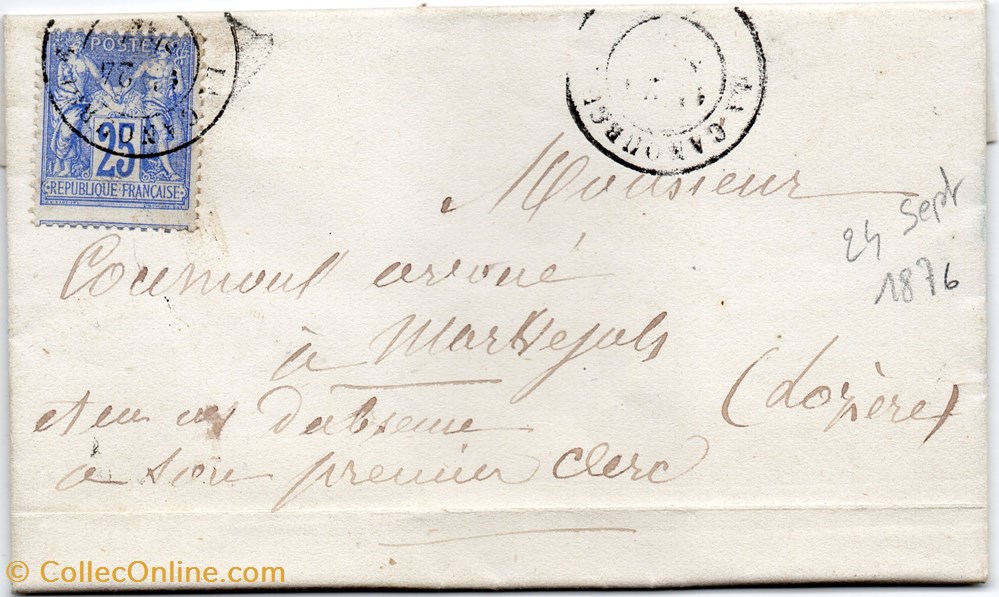 POSTES
25
REPUBLIQUE FRANÇAISE
24
LA CANOURGUE
LA CANOURGUE
Monsieur
avoué
à Marvejols
(Lozère)
et en cas d'absence
à son premier clerc
24 Sept
1876
© CollecOnline.com